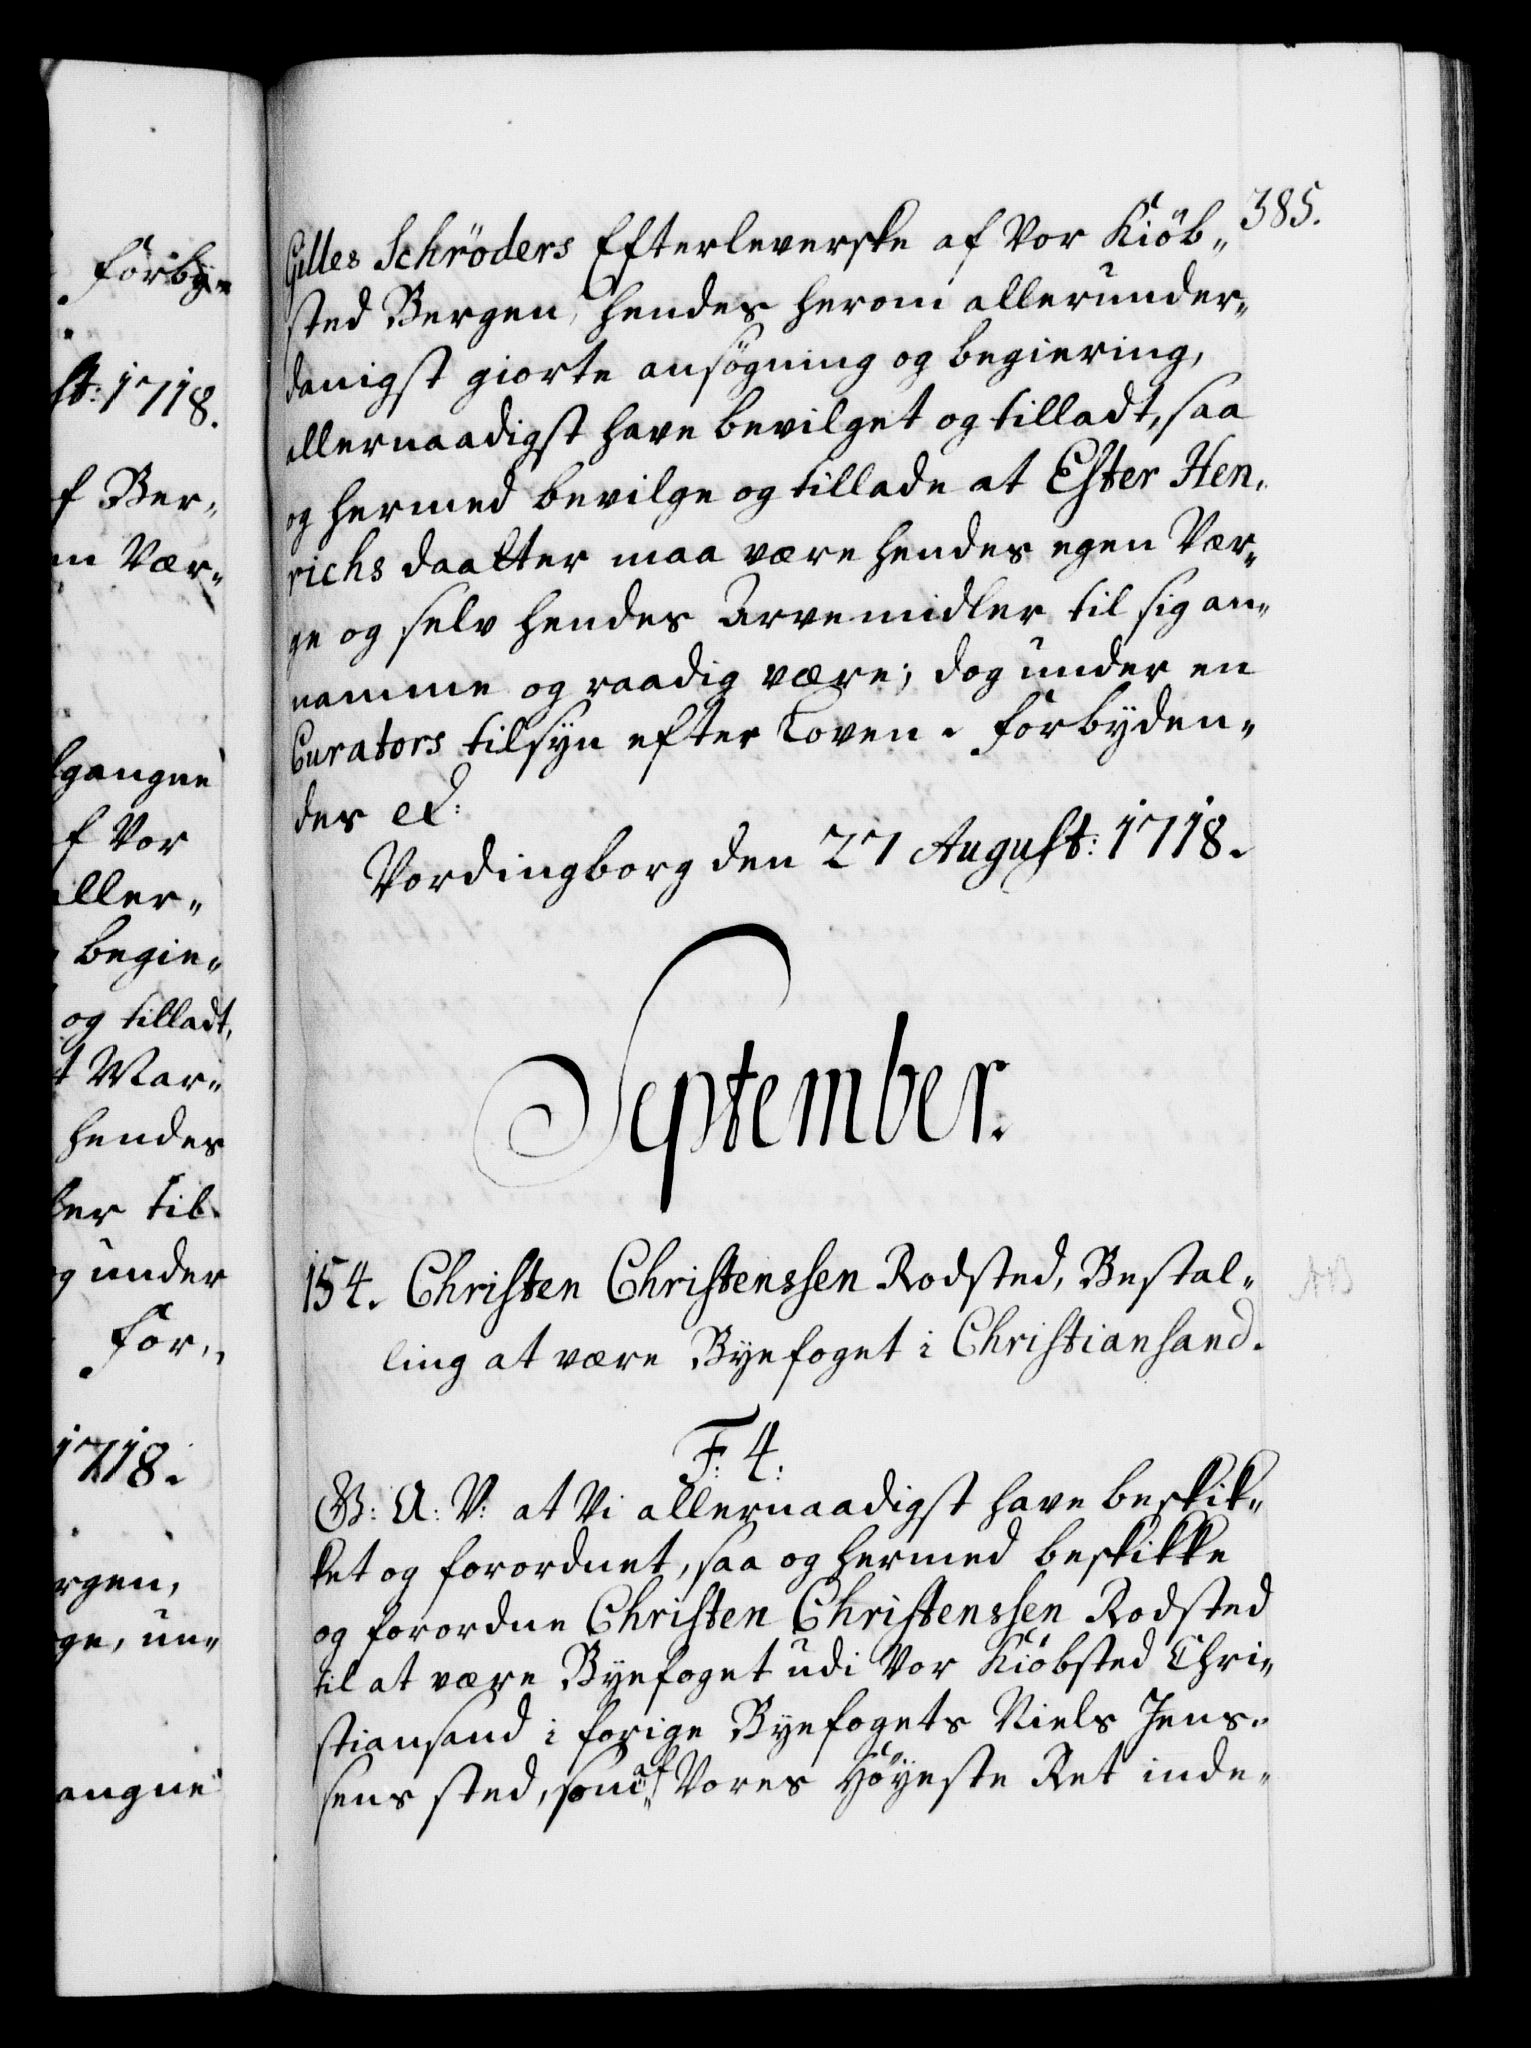 385.
Gilles Schröders Efterleverske af Vor Kiöb„
sted Bergen, hendes herom allerunder„
danigst giorte ansögning og begiering,
allernaadigst have bevilget og tilladt, saa
og hermed bevilge og tillade at Ester Hen„
richs daatter maa være hendes egen Vær„
ge og selv hendes Arvemidler til sig an„
namme og raadig være; dog under en
Curators tilsyn efter Loven. Forbyden„
des etc:
Vordingborg den 27 August: 1718.
September.
154. Christen Christenssen Rodsted, Bestal„
ling at være Byefoget i Christiansand.
F: 4:
G: A: V: at Vi allernaadigst have beskik„
ket og forordnet, saa og hermed beskikke
og forordne Christen Christenssen Rodsted
til at være Byefoget udi Vor Kiöbsted Chri„
stiansand i forige Byefogets Niels Jens„
sens sted, som af Vores Höyeste Ret inde„
forby„
st: 1718.
f Ber„
n Vær„
lgangne
f Vor
aller„
begie„
og tilladt,
t Mar„
hendes
ler til
g under
For„
1718.
rgen,
ge, un„
angne